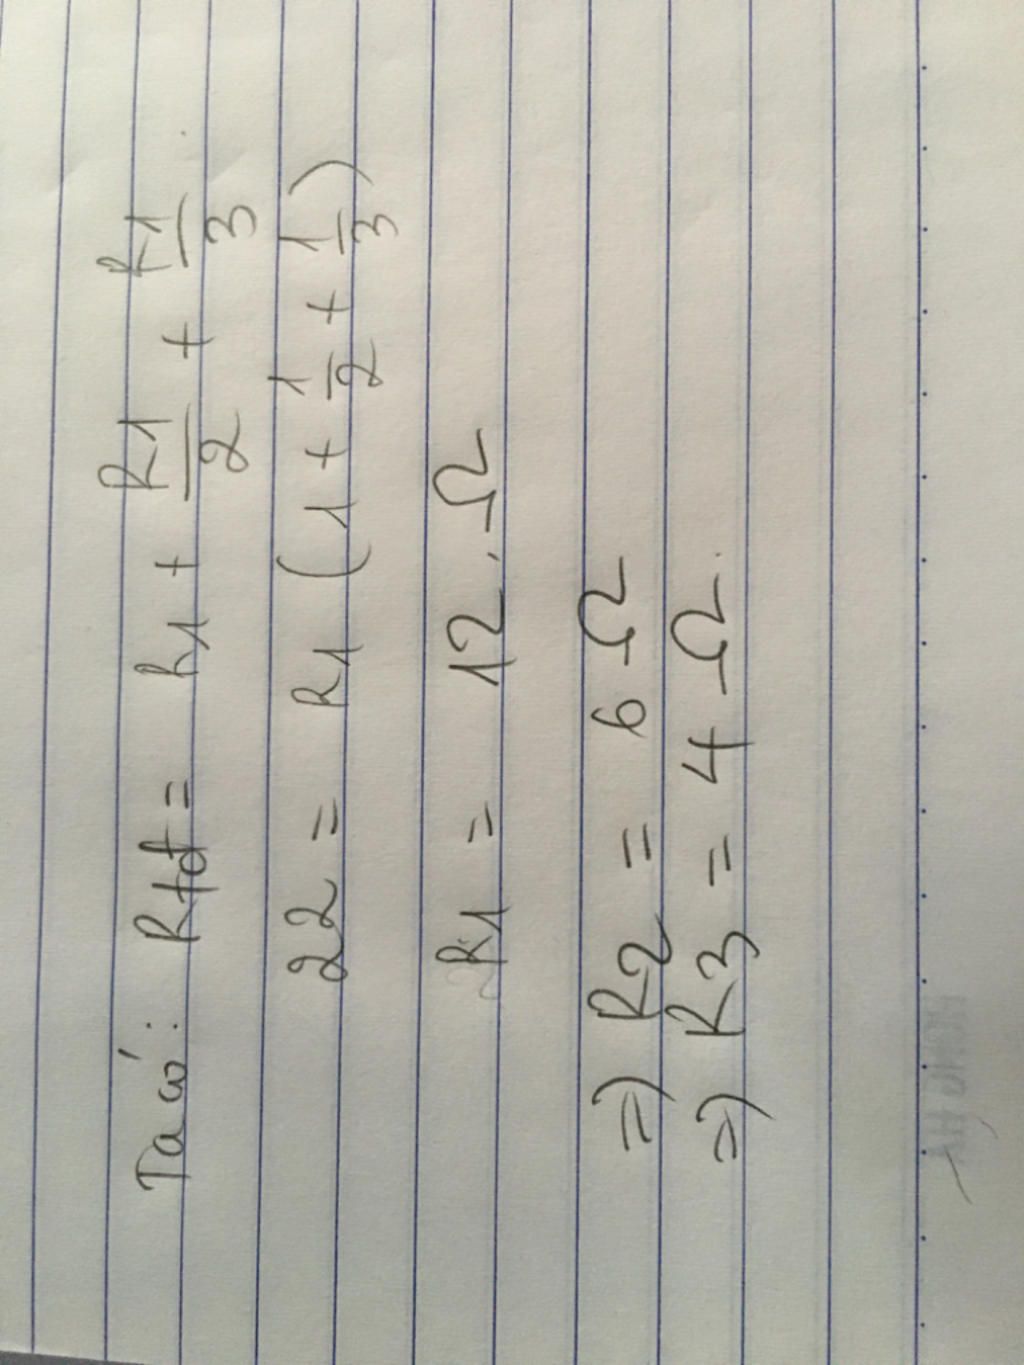 Ta có: Rtđ = R1 + R1/2 + R1/3
22 = R1 (1 + 1/2 + 1/3)
R1 = 12.Ω
=> R2 = 6 Ω
=> R3 = 4 Ω.